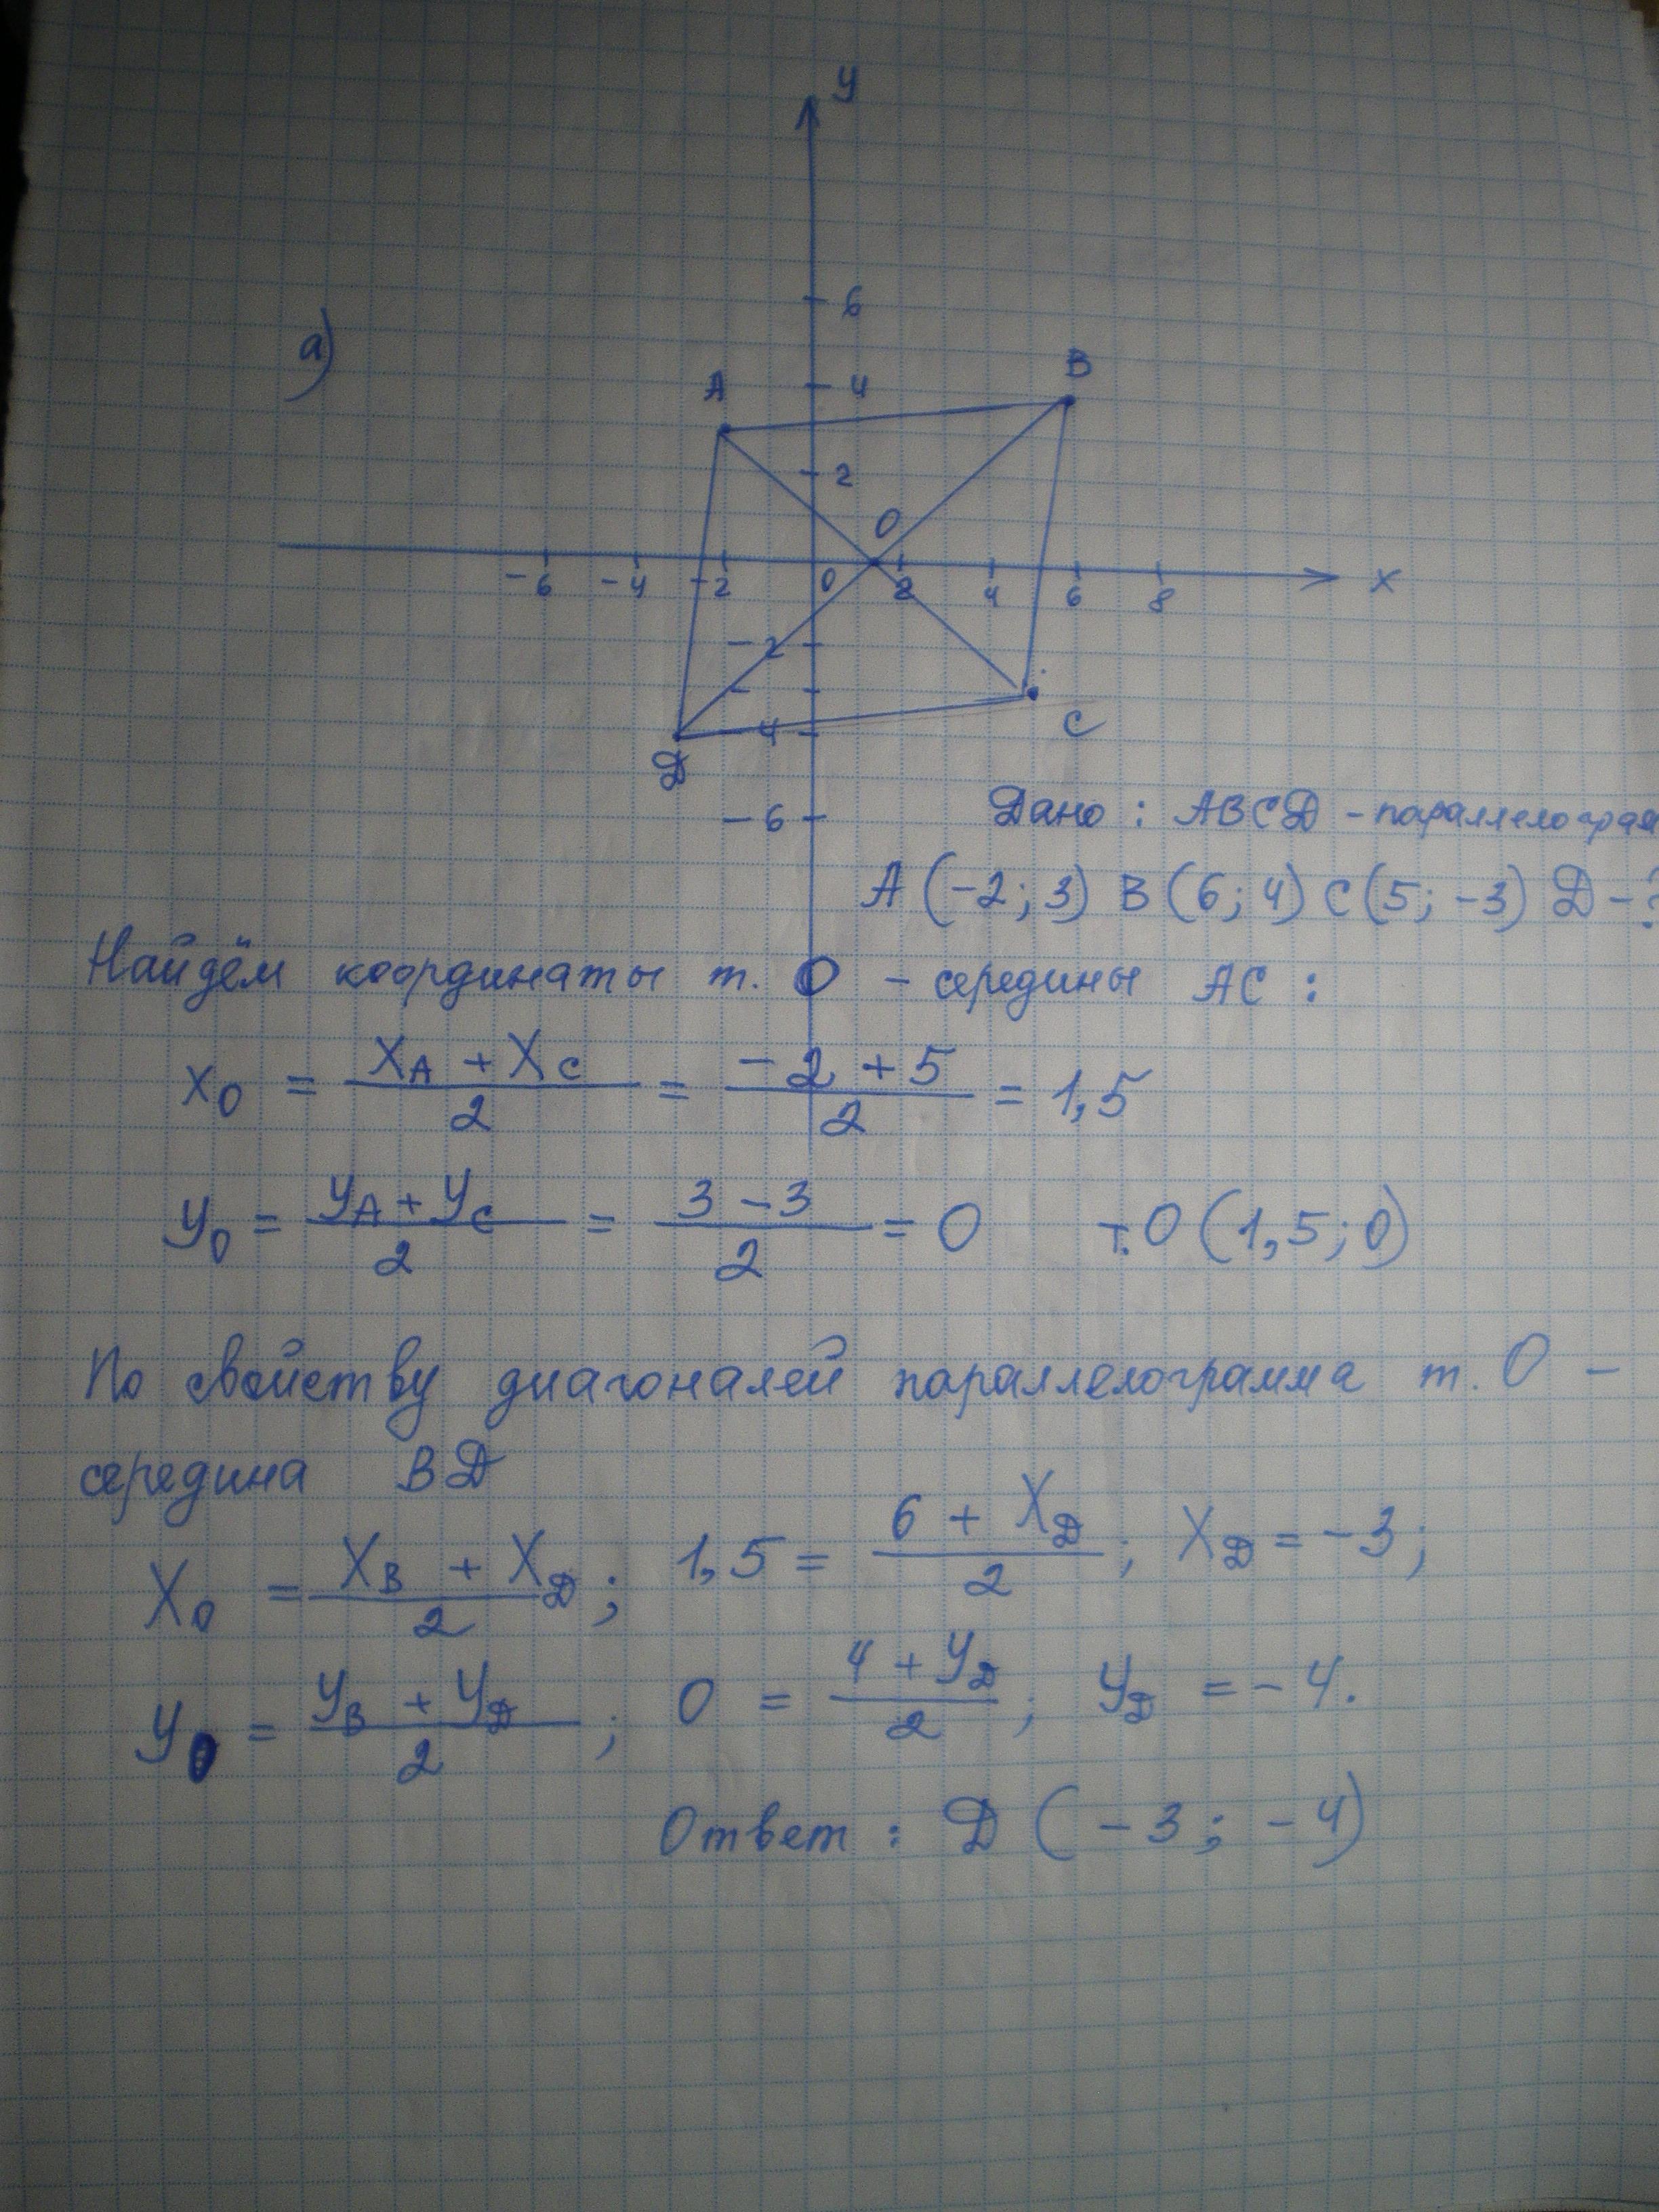 y
6
а)
A
4
B
2
O
-6 -4 -2 0 2 4 6 8 x
-2
-4
C
D
-6
Дано : ABCD - параллелограм
A (-2; 3) B (6; 4) C (5; -3) D - ?
Найдём координаты т. O - середины AC :
x₀ = (x_A + x_C)/2 = (-2 + 5)/2 = 1,5
y₀ = (y_A + y_C)/2 = (3 - 3)/2 = 0 т. O (1,5; 0)
По свойству диагоналей параллелограмма т. O -
середина BD
x₀ = (x_B + x_D)/2 ; 1,5 = (6 + x_D)/2 ; x_D = -3 ;
y₀ = (y_B + y_D)/2 ; 0 = (4 + y_D)/2 ; y_D = -4.
Ответ : D (-3; -4)